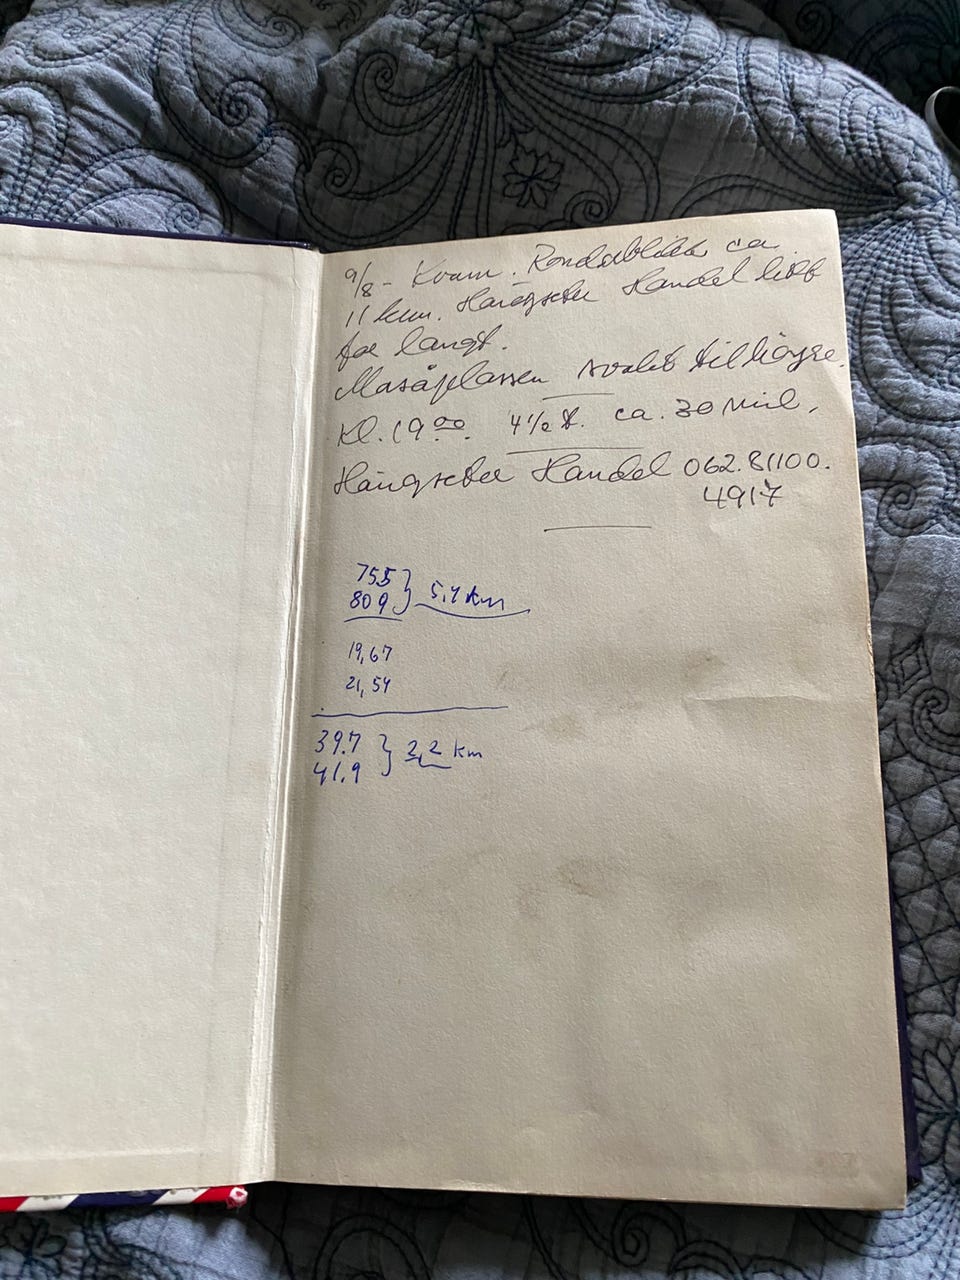 9/8 - Kvam. Rondablikk ca
11 km. Haugseter Handel litt
for langt.
Masåplassen svakt til höyre.
Kl. 19 00. 4 1/2 t. ca. 30 mil.
Haugseter Handel 062.81100.
4917
755
809 } 5,4 km
19,67
21,54
39.7
41.9 } 2,2 km